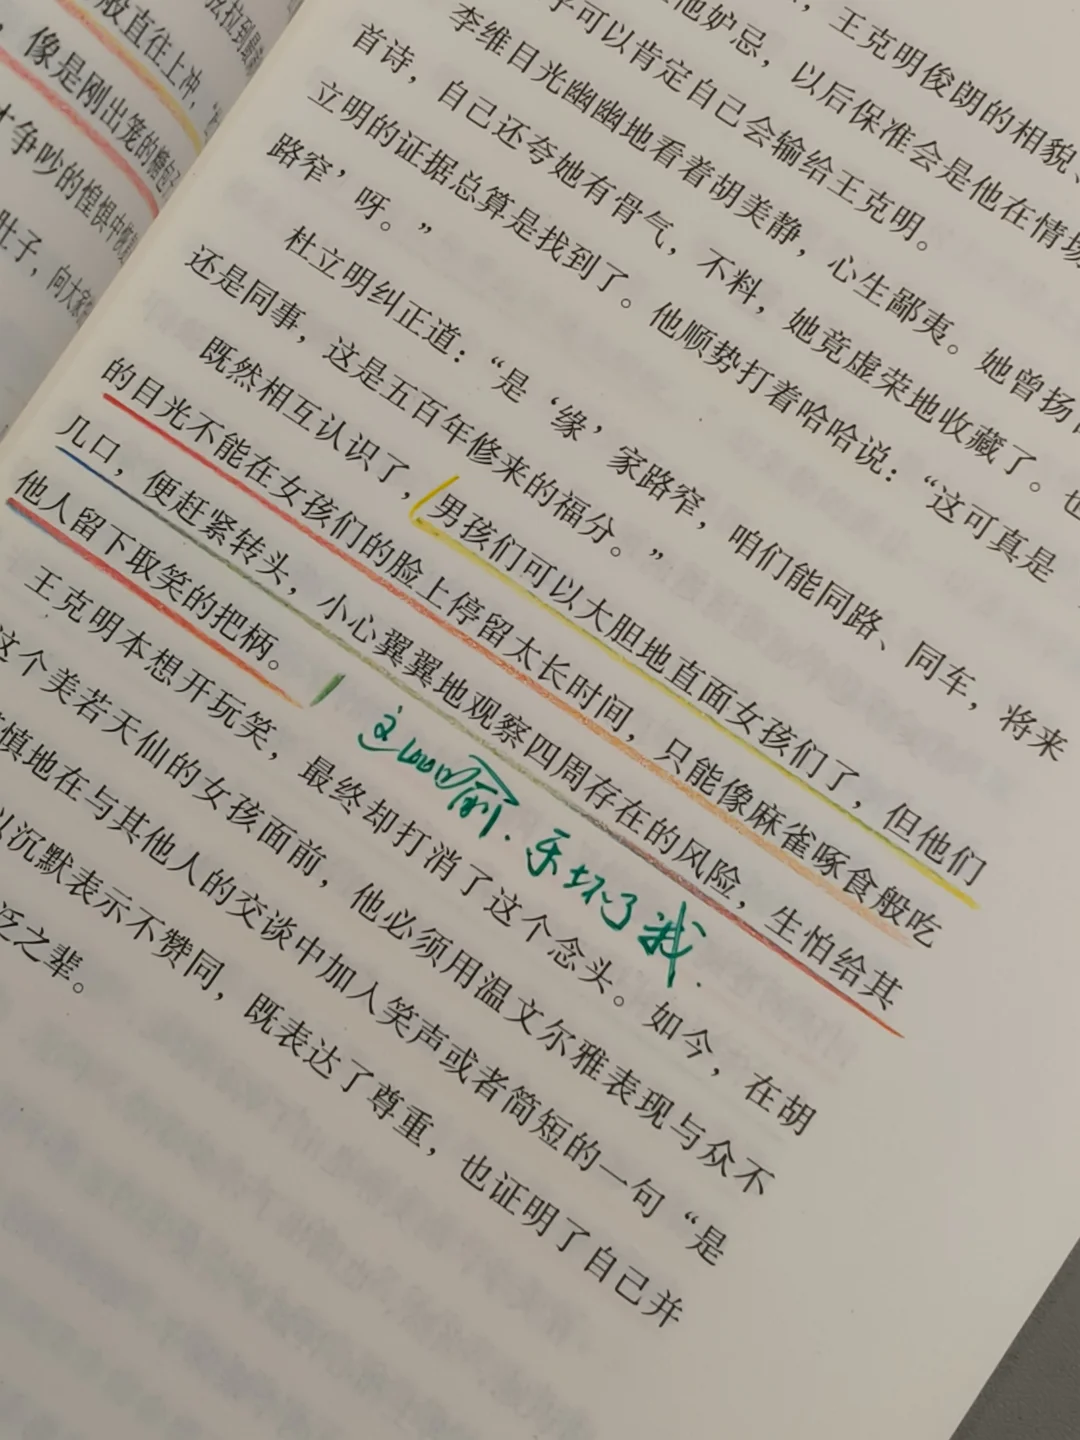 般直往上冲，
，像是刚出笼的
才争吵的惶惧中
肚子，向大家
，王克明俊朗的相貌、
他妒忌，以后保准会是他在情场
乎可以肯定自己会输给王克明。
李维目光幽幽地看着胡美静，心生鄙夷。她曾扬
首诗，自己还夸她有骨气，不料，她竟虚荣地收藏了。也
立明的证据总算是找到了。他顺势打着哈哈说：“这可真是
路窄’呀。”
杜立明纠正道：“是‘缘’家路窄，咱们能同路、同车，将来
还是同事，这是五百年修来的福分。”
既然相互认识了，男孩们可以大胆地直面女孩们了，但他们
的目光不能在女孩们的脸上停留太长时间，只能像麻雀啄食般吃
几口，便赶紧转头，小心翼翼地观察四周存在的风险，生怕给其
他人留下取笑的把柄。
这比喻．乐坏了我．
王克明本想开玩笑，最终却打消了这个念头。如今，在胡
这个美若天仙的女孩面前，他必须用温文尔雅表现与众不
慎地在与其他人的交谈中加入笑声或者简短的一句“是
以沉默表示不赞同，既表达了尊重，也证明了自己并
泛之辈。